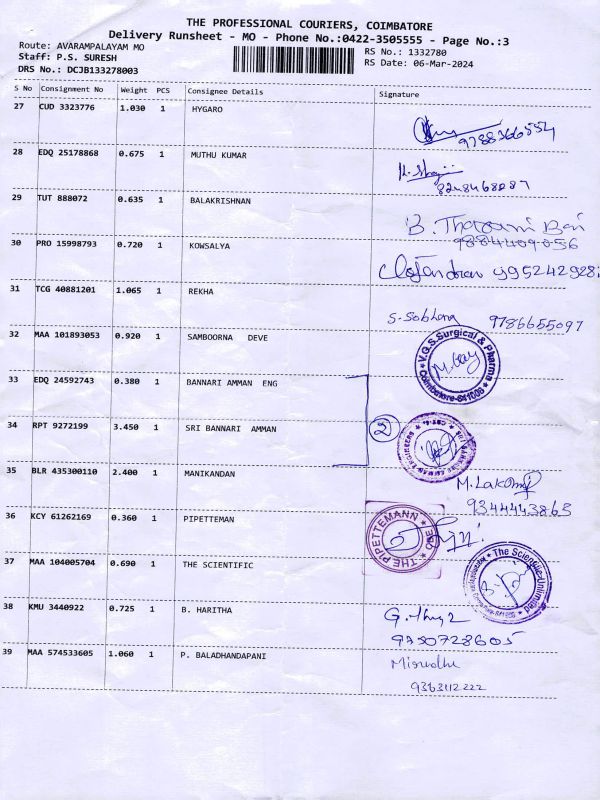 THE PROFESSIONAL COURIERS, COIMBATORE
Delivery Runsheet - MO - Phone No.:0422-3505555 - Page No.:3
Route: AVARAMPALAYAM MO
RS No.: 1332780
Staff: P.S. SURESH
RS Date: 06-Mar-2024
DRS No.: DCJB133278003
S No Consignment No Weight PCS Consignee Details Signature
27 CUD 3323776 1.030 1 HYGARO
9788366554
28 EDQ 25178868 0.675 1 MUTHU KUMAR
29 TUT 888072 0.635 1 BALAKRISHNAN
9884409056
30 PRO 15998793 0.720 1 KOWSALYA
995242928
31 TCG 40881201 1.065 1 REKHA
S. Sobhana 9786655097
32 MAA 101893053 0.920 1 SAMBOORNA DEVE
V.G.S. Surgical & Pharma
Coimbatore-641006
33 EDQ 24592743 0.380 1 BANNARI AMMAN ENG
34 RPT 9272199 3.450 1 SRI BANNARI AMMAN
2
35 BLR 435300110 2.400 1 MANIKANDAN
9344443863
36 KCY 61262169 0.360 1 PIPETTEMAN
THE PIPETTEMANN
37 MAA 104005704 0.690 1 THE SCIENTIFIC
The Scientific Unlimited
38 KMU 3440922 0.725 1 B. HARITHA
9750728605
39 MAA 574533605 1.060 1 P. BALADHANDAPANI
9363112222